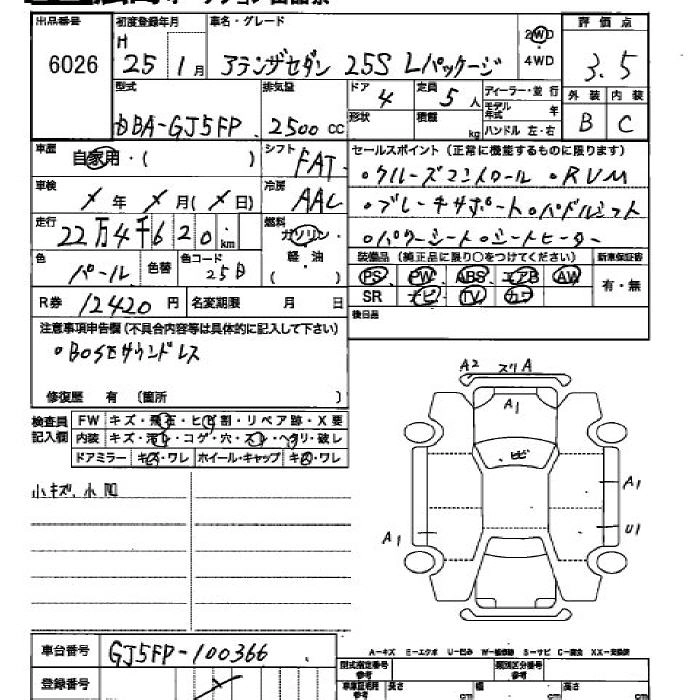 出品番号 初度登録年月 車名・グレード 評価点
6026 H 25 1月 アクセラセダン 25S Lパッケージ 2WD ・ 4WD 3.5
型式 排気量 ドア 4 定員 5人 ディーラー・並行 外装 内装
DBA-GJ5FP 2500cc 形状 積載 kg モデル年式 年 ハンドル 左・右 B C
車歴 自家用・( ) シフト FAT セールスポイント(正常に機能するものに限ります)
車検 メ年 メ月(メ日) 冷房 AAC ・クルーズコントロール ・RVM
走行 22万4千620km 燃料 ガソリン・軽油( ) ・ブレーキサポート・パドルシフト
・パワーシート・シートヒーター
色 パール 色替 色コード 25D 装備品(純正品に限り○をつけてください) 新車保証書
PS PW ABS エアB AW 有・無
R券 12420円 名変期限 月 日 SR ナビ TV カワ
注意事項申告欄(不具合内容等は具体的に記入して下さい) 後日品
・BOSEサウンドレス
修復歴 有 (箇所 )
検査員記入欄 FW キズ・飛石・ヒビ割・リペア跡・X要
内装 キズ・汚レ・コゲ・穴・スレ・ヘタリ・破レ
ドアミラー キズ・ワレ ホイール・キャップ キズ・ワレ
小キズ、小凹
A2 スリA
A1
ヒビ
A1
A1 U1
車台番号 GJ5FP-100366
A-キズ E-エクボ U-凹み W-補修跡 S-サビ C-腐食 XX-交換済
登録番号 型式指定番号 参考 類別区分番号 参考
長さ cm 幅 cm 高さ cm